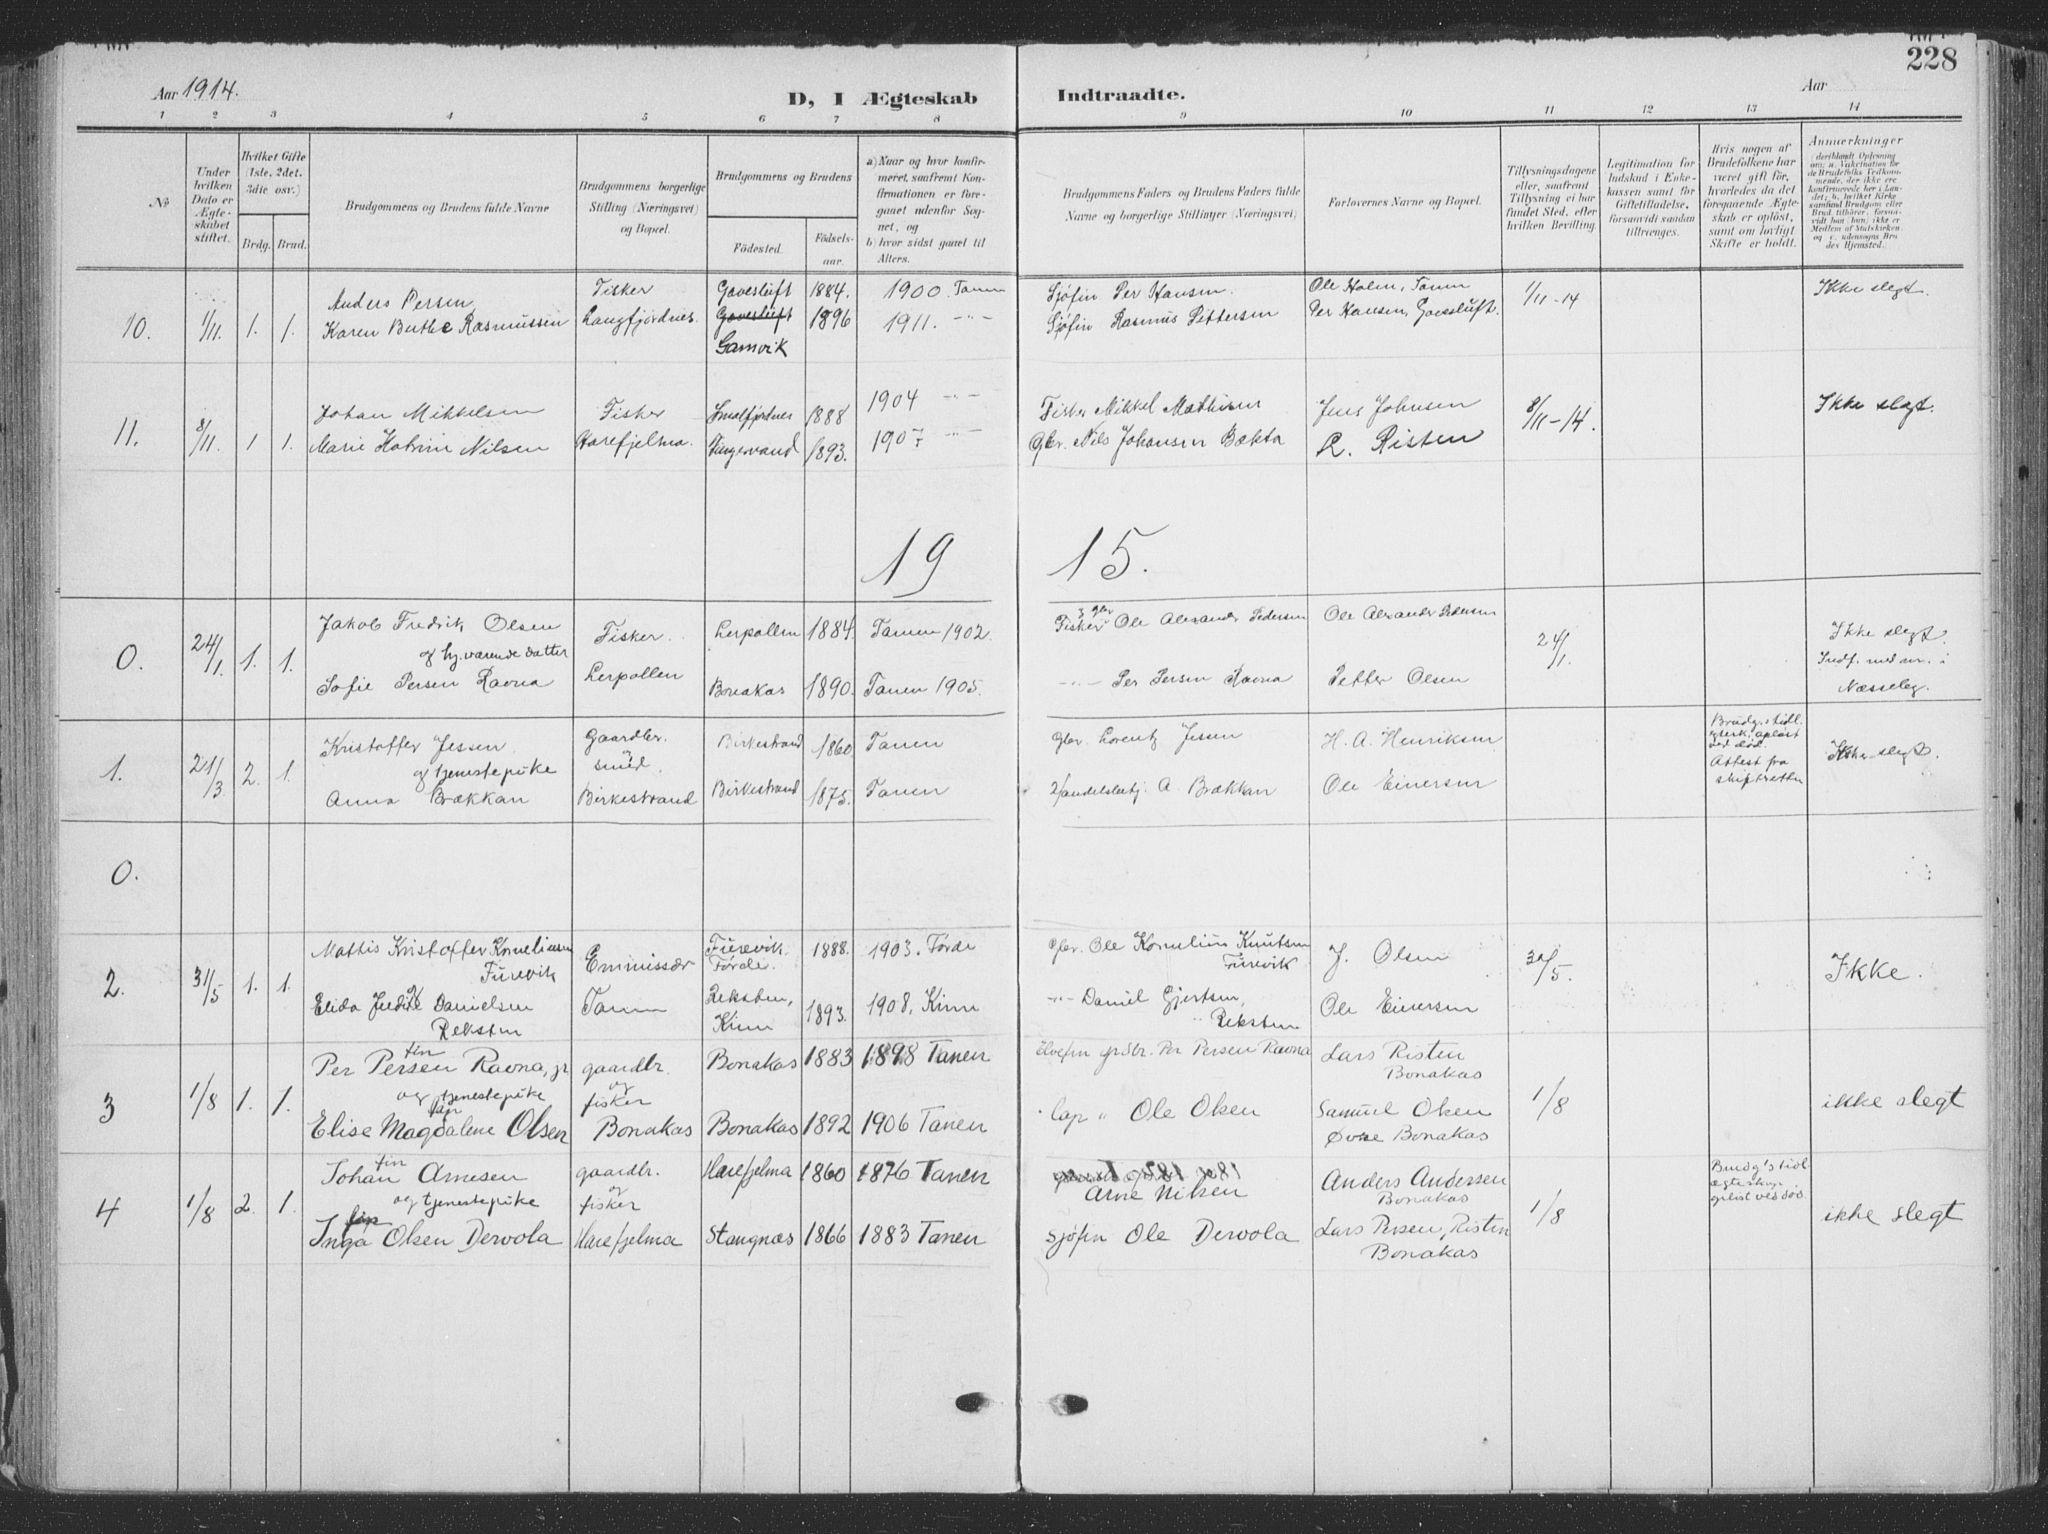 228
Aar 1914.
D, I Ægteskab Indtraadte.
Aar
1 2 3 4 5 6 7 8 9 10 11 12 13 14
No
Under hvilken Dato er Ægteskabet stiftet.
Hvilket Gifte (1ste, 2det, 3die osv.)
Brdg. Brud.
Brudgommens og Brudens fulde Navne
Brudgommens borgerlige Stilling (Næringsvei) og Bopæl.
Brudgommens og Brudens
Fødested. Fødselsaar.
a) Naar og hvor konfirmeret, saafremt Konfirmationen er foregaaet udenfor Sognet, og
b) hvor sidst gaaet til Alters.
Brudgommens Faders og Brudens Faders fulde Navne og borgerlige Stillinger (Næringsvei)
Forlovernes Navne og Bopæl.
Tillysningsdagene eller, saafremt Tillysning ei har fundet Sted, efter hvilken Bevilling.
Legitimation for Indskud i Enkekassen samt for Giftetilladelse, forsaavidt saadan tiltrænges.
Hvis nogen af Brudefolkene har været gift før, hvorledes da det foregaaende Ægteskab er opløst, samt om lovligt Skifte er holdt.
Anmærkninger
10. 1/11. 1. 1. Anders Persen Fisker Gavesluft 1884. 1900. Tanen Sjøfin Per Hansen. Ole Holm, Tanen 1/11-14 Ikke slegt.
Karen Birthe Rasmussen Langfjordnes Gavesluft 1896 1911. -"- Sjøfin Rasmus Pettersen Per Hansen, Gavesluft.
Gamvik
11. 8/11. 1 1. Johan Mikkelsen Fisker Smalfjordnes 1888 1904 -"- Fisker Mikkel Mathisen Jens Johnsen 8/11-14. Ikke slegt.
Marie Katrine Nilsen Harefjelma. Vingervand 1893. 1907 -"- Gbr. Nils Johansen Bækta L. Risten
1915.
0. 24/1. 1. 1. Jakob Fredrik Olsen Fisker Lerpollen 1884. Tanen 1902. Fisker & gbr Ole Alexander Pedersen Ole Alexander Pedersen 24/1. Ikke slegt.
og hj.værende datter
Sofie Persen Ravna Lerpollen Bonakas 1890. Tanen 1905. -"- Per Persen Ravna Petter Olsen Indf. med nr. i Nesseby.
1. 21/3. 2. 1. Kristoffer Jessen Gaardbr. & smed. Birkestrand 1860 Tanen Gbr. Lorentz Jessen H. A. Henriksen Brudg.s tidl. egtesk. opløst ved død. Attest fra skifteretten Ikke slegt.
og tjenestepike
Anna Brækkan Birkestrand Birkestrand 1875. Tanen Handelsbetj. A. Brækkan Ole Einersen
0.
2. 31/5 1. 1. Mattis Kristoffer Korneliussen Furevik Emmissær Furevik, Førde. 1888. 1903. Førde Gbr. Ole Kornelius Knutsen Furevik J. Olsen 30/5. Ikke.
og
Elida Judite Danielsen Reksten Tanen Reksten, Kinn 1893. 1908. Kinn -"- Daniel Gjertsen, Reksten Ole Einersen
3 1/8 1. 1. Per Persen Ravna, jr fin gaardbr. og fisker Bonakas 1883 1898 Tanen Elvefin grdbr. Per Persen Ravna Lars Risten Bonakas 1/8 ikke slegt
og tjenestepike
Elise Magdalene Olsen Bonakas Bonakas 1892 1906 Tanen lap " Ole Olsen Samuel Olsen Øvre Bonakas
4 1/8 2. 1. Johan Arnesen fin gaardbr. og fisker Harefjelma 1860 1876 Tanen Arne Nilsen Anders Andersen Bonakas 1/8 Brudg's tidl. ægteskap opløst ved død ikke slegt
og tjenestepike
fin
Inga Olsen Dervola Harefjelma Stangnæs 1866 1883 Tanen Sjøfin Ole Dervola Lars Persen, Risten Bonakas